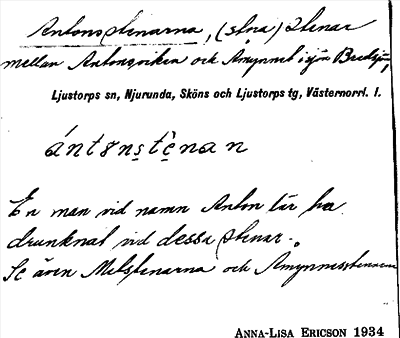 Antonsstenarna, (stora) stenar
mellan Antonsviken och Åmynnet i sjön Bredsjön,
Ljustorps sn, Njurunda, Sköns och Ljustorps tg, Västernorrl. l.
ántɜns̱tè̱nan
En man vid namn Anton lär ha
drunknat vid dessa stenar.
Se även Metstenarna och Åmynnesstenarna
ANNA-LISA ERICSON 1934